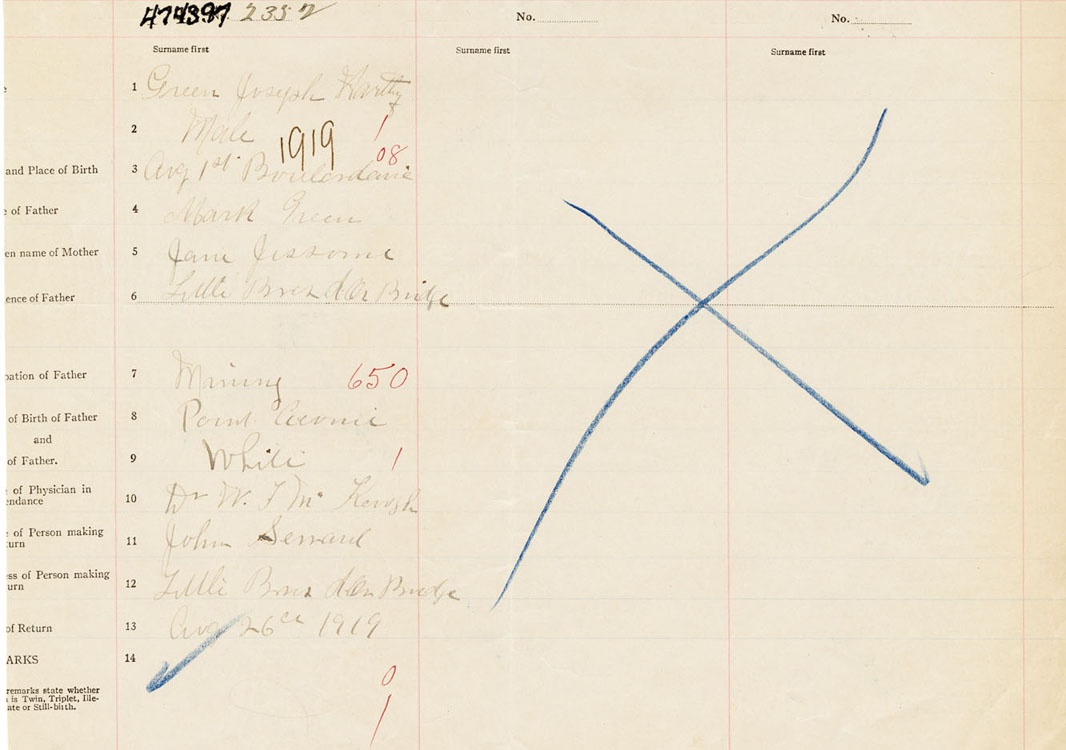 474397 2352 No. No.
Surname first Surname first Surname first
e 1 Green Joseph
2 Male 1
1919 08
and Place of Birth 3 Aug 1st Boulardarie
e of Father 4 Mark Green
en name of Mother 5 Jane Jessome
ence of Father 6 Little Bras d'Or Bridge
pation of Father 7 Mining 650
of Birth of Father 8 Point Aconi
and
of Father. 9 White 1
e of Physician in
endance 10 Dr W. F Mc Keough
e of Person making
turn 11 John
ess of Person making
urn 12 Little Bras d'Or Bridge
of Return 13 Aug 26th 1919
ARKS 14
0
remarks state whether
is Twin, Triplet, Ille-
ate or Still-birth.
1